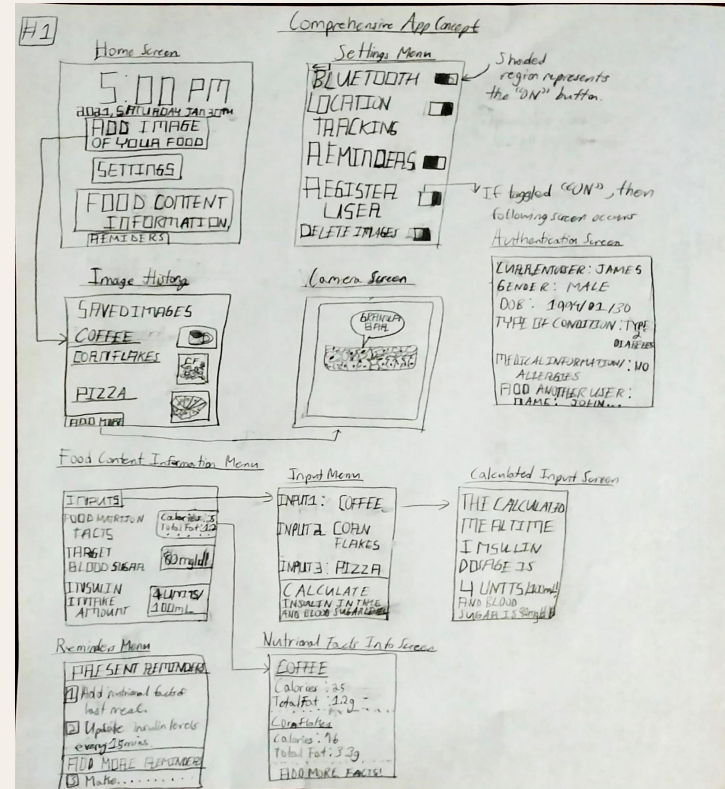 #1
Comprehensive App Concept
Home Screen
5:00 PM
2021, SATURDAY JAN 30TH
ADD IMAGE
OF YOUR FOOD
SETTINGS
FOOD CONTENT
INFORMATION,
REMIDERS
Settings Menu
BLUETOOTH
LOCATION
TRACKING
REMINDERS
REGISTER
USER
DELETE IMAGES
Shaded
region represents
the "ON" button.
If toggled "ON", then
following screen occurs
Authentication Screen
CURRENT USER: JAMES
GENDER: MALE
DOB: 1994/01/30
TYPE OF CONDITION: TYPE
2
DIABETES
MEDICAL INFORMATION: NO
ALLERGIES
ADD ANOTHER USER:
NAME: JOHN...
Image History
SAVED IMAGES
COFFEE
CORNFLAKES
CF
PIZZA
ADD MORE
Camera Screen
GRANOLA
BAR
Food Content Information Menu
INPUTS
FOOD NUTRITION
FACTS
Calories: 25
Total Fat: 1.2
TARGET
BLOOD SUGAR
80mg/dl
INSULIN
INTAKE
AMOUNT
4 UNITS/
100mL
Input Menu
INPUT 1: COFFEE
INPUT 2 CORN
FLAKES
INPUT 3: PIZZA
CALCULATE
INSULIN INTAKE
AND BLOOD SUGAR LEVEL
Calculated Input Screen
THE CALCULATED
MEALTIME
INSULIN
DOSAGE IS
4 UNITS/100mL
AND BLOOD
SUGAR IS 80mg/dl
Reminders Menu
PRESENT REMINDERS
1 Add nutritional facts of
last meal.
2 Update insulin levels
every 15mins
ADD MORE REMINDERS
3 Make........
Nutrional Facts Info Screen
COFFEE
Calories: 25
Total Fat: 1.2g
Cornflakes
Calories: 96
Total Fat: 3.3g
ADD MORE FACTS!